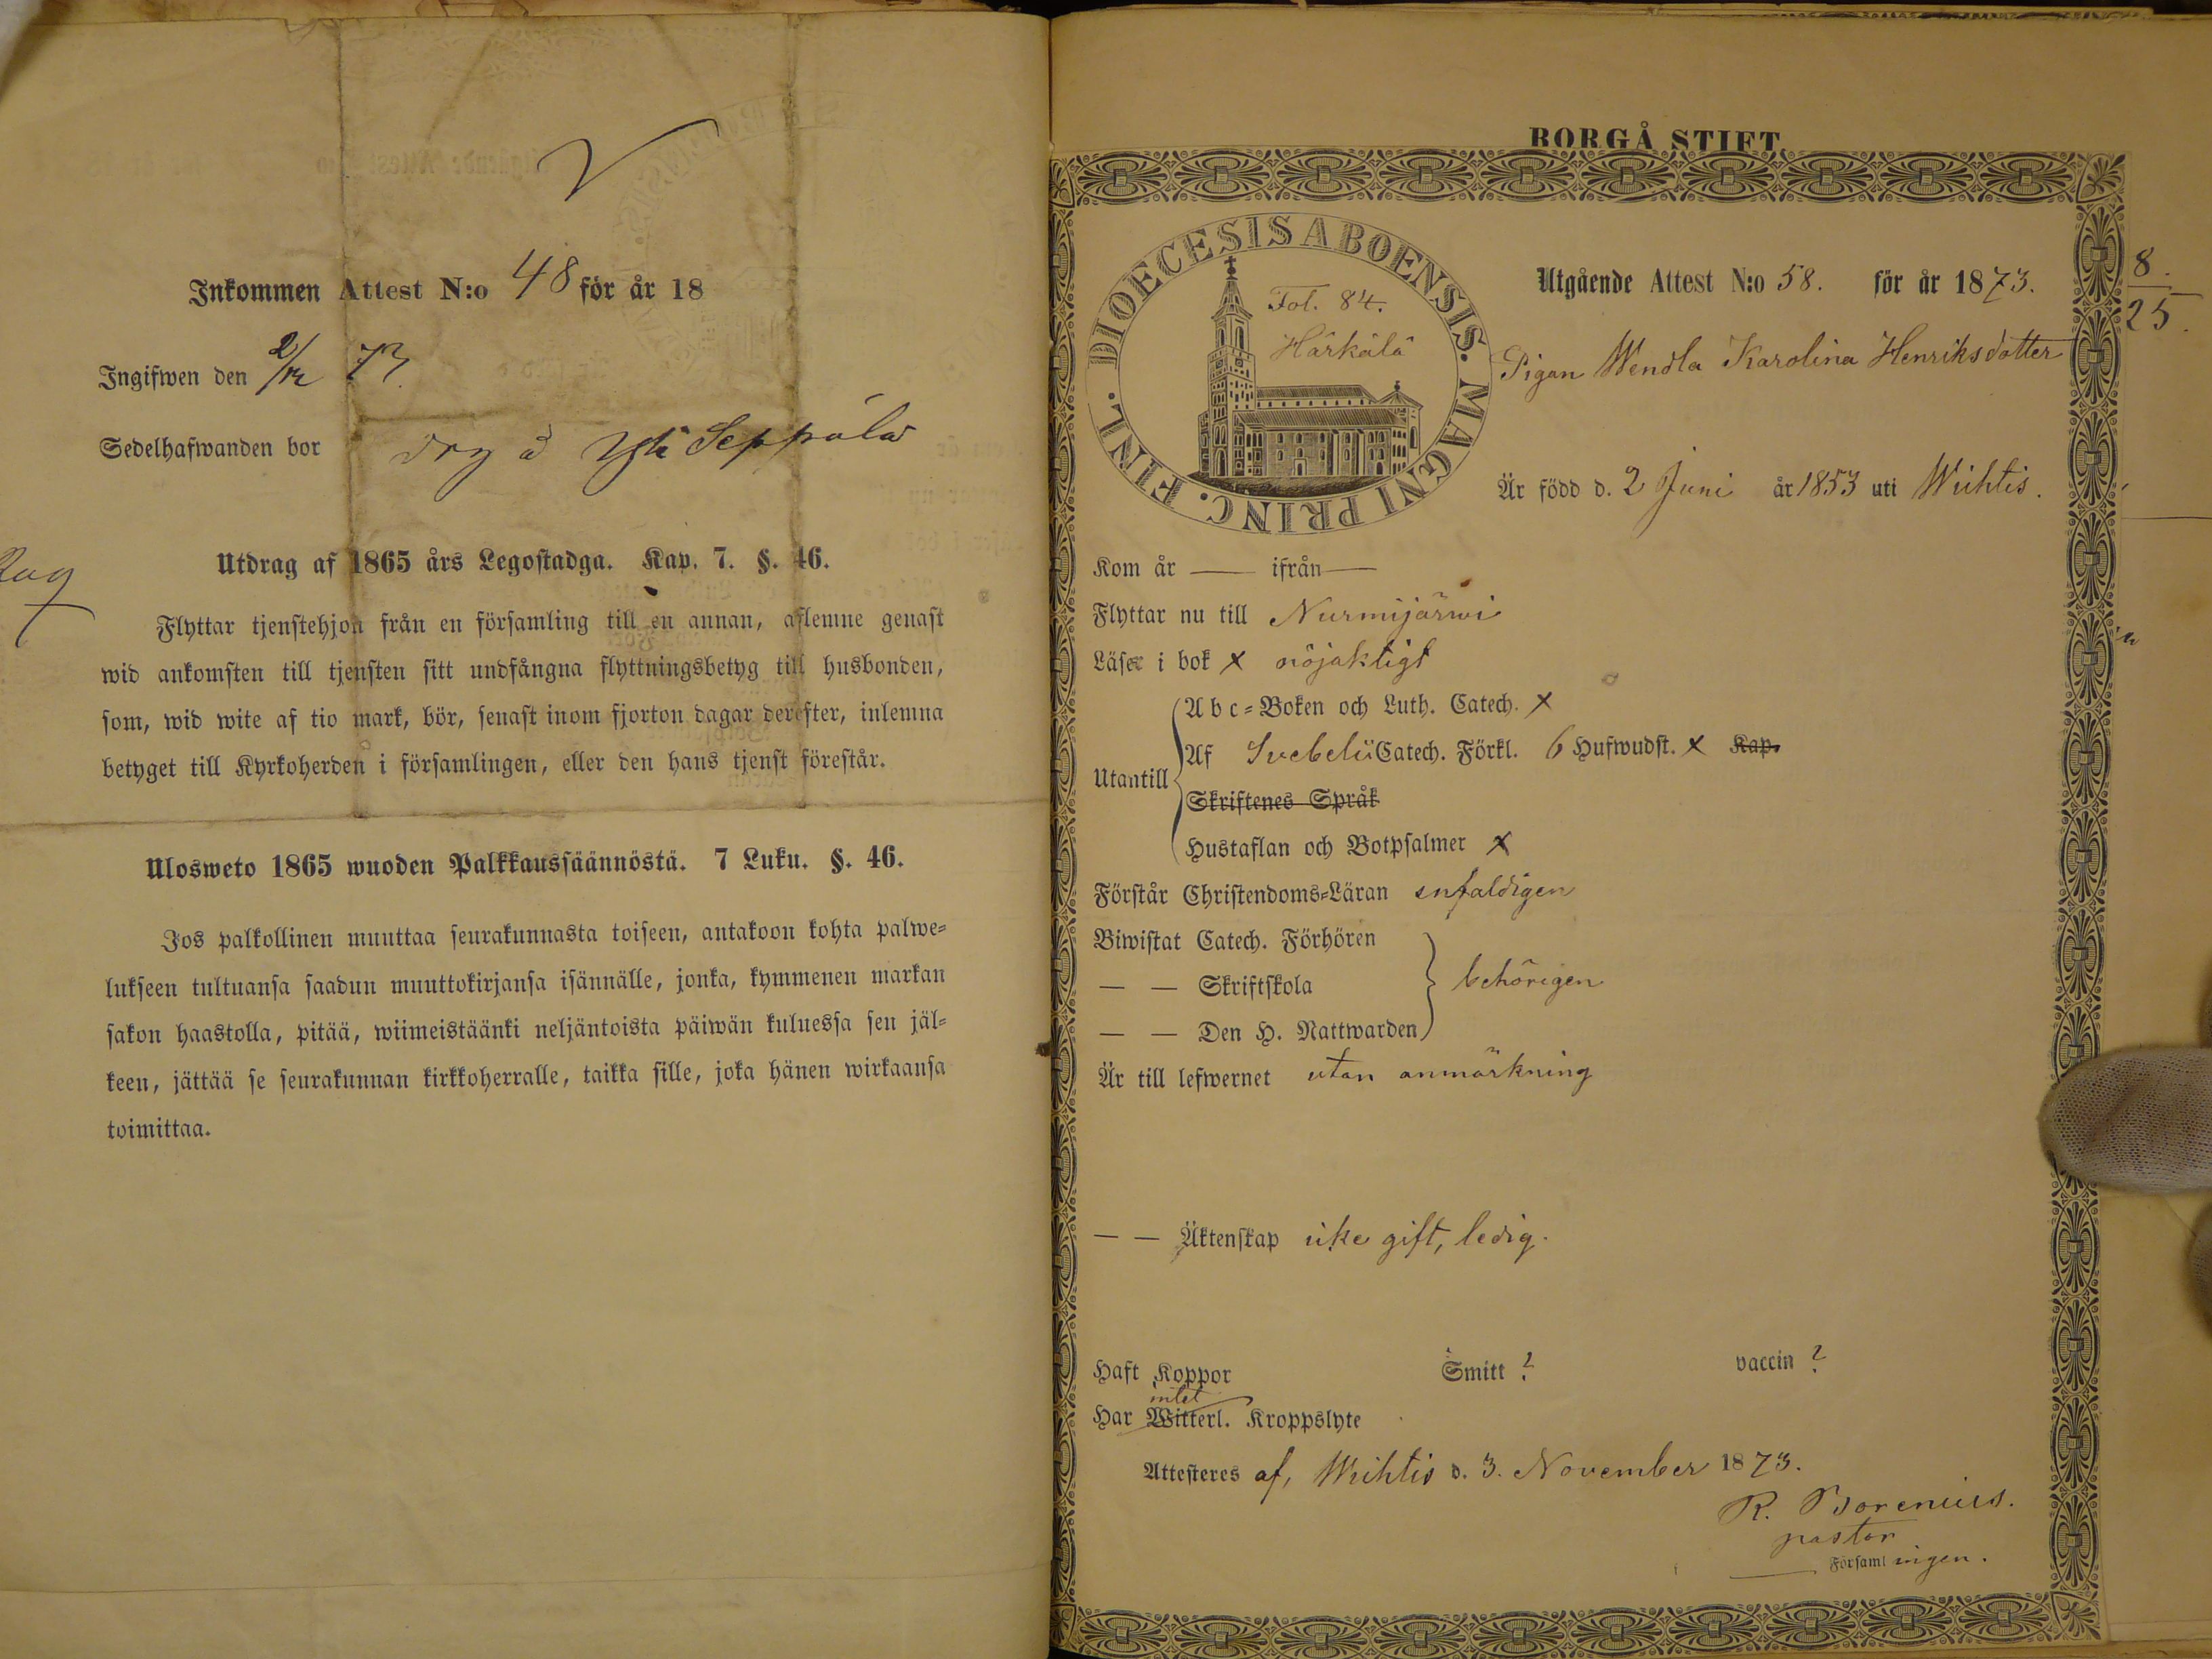 Inkommen Attest N:o 48 för år 18
Ingifwen den 2/12 73.
Sedelhafwanden bor drg å Yli Seppälä
Utdrag af 1865 års Legostadga. Kap. 7. §. 46.
Flyttar tjenstehjon från en församling till en annan, aflemne genast
wid ankomsten till tjensten sitt undfångna flyttningsbetyg till husbonden,
som, wid wite af tio mark, bör, senast inom fjorton dagar derefter, inlemna
betyget till Kyrkoherden i församlingen, eller den hans tjenst förestår.
Ulosweto 1865 wuoden Palkkaussäännöstä. 7 Luku. §. 46.
Jos palkollinen muuttaa seurakunnasta toiseen, antakoon kohta palwe-
lukseen tultuansa saadun muuttokirjansa isännälle, jonka, kymmenen markan
sakon haastolla, pitää, wiimeistäänki neljäntoista päiwän kuluessa sen jäl-
keen, jättää se seurakunnan kirkkoherralle, taikka sille, joka hänen wirkaansa
toimittaa.
BORGÅ STIFT.
DIOECESIS ABOENSIS. MAGNI PRINC. FINL.
Fol. 84.
Härkälä
Utgående Attest N:o 58. för år 1873.
8
25.
Pigan Wendla Karolina Henriksdotter
Är född d. 2 Juni år 1853 uti Wichtis.
Kom år — ifrån —
Flyttar nu till Nurmijärwi
Läser i bok x nöjaktigt
Utantill
Abc-Boken och Luth. Catech. x
Af Svebelii Catech. Förkl. 6 Hufwudst. x Kap.
Skriftenes Språk
Hustaflan och Botpsalmer x
Förstår Christendoms-Läran enfaldigen
Biwistat Catech. Förhören
— — Skriftskola behörigen
— — Den H. Nattwarden
Är till lefwernet utan anmärkning
— — Äktenskap icke gift, ledig.
Haft Koppor Smitt ? vaccin ?
intet
Har Witterl. Kroppslyte
Attesteres af, Wichtis d. 3. November 1873.
R. Borenius.
pastor
Församlingen.